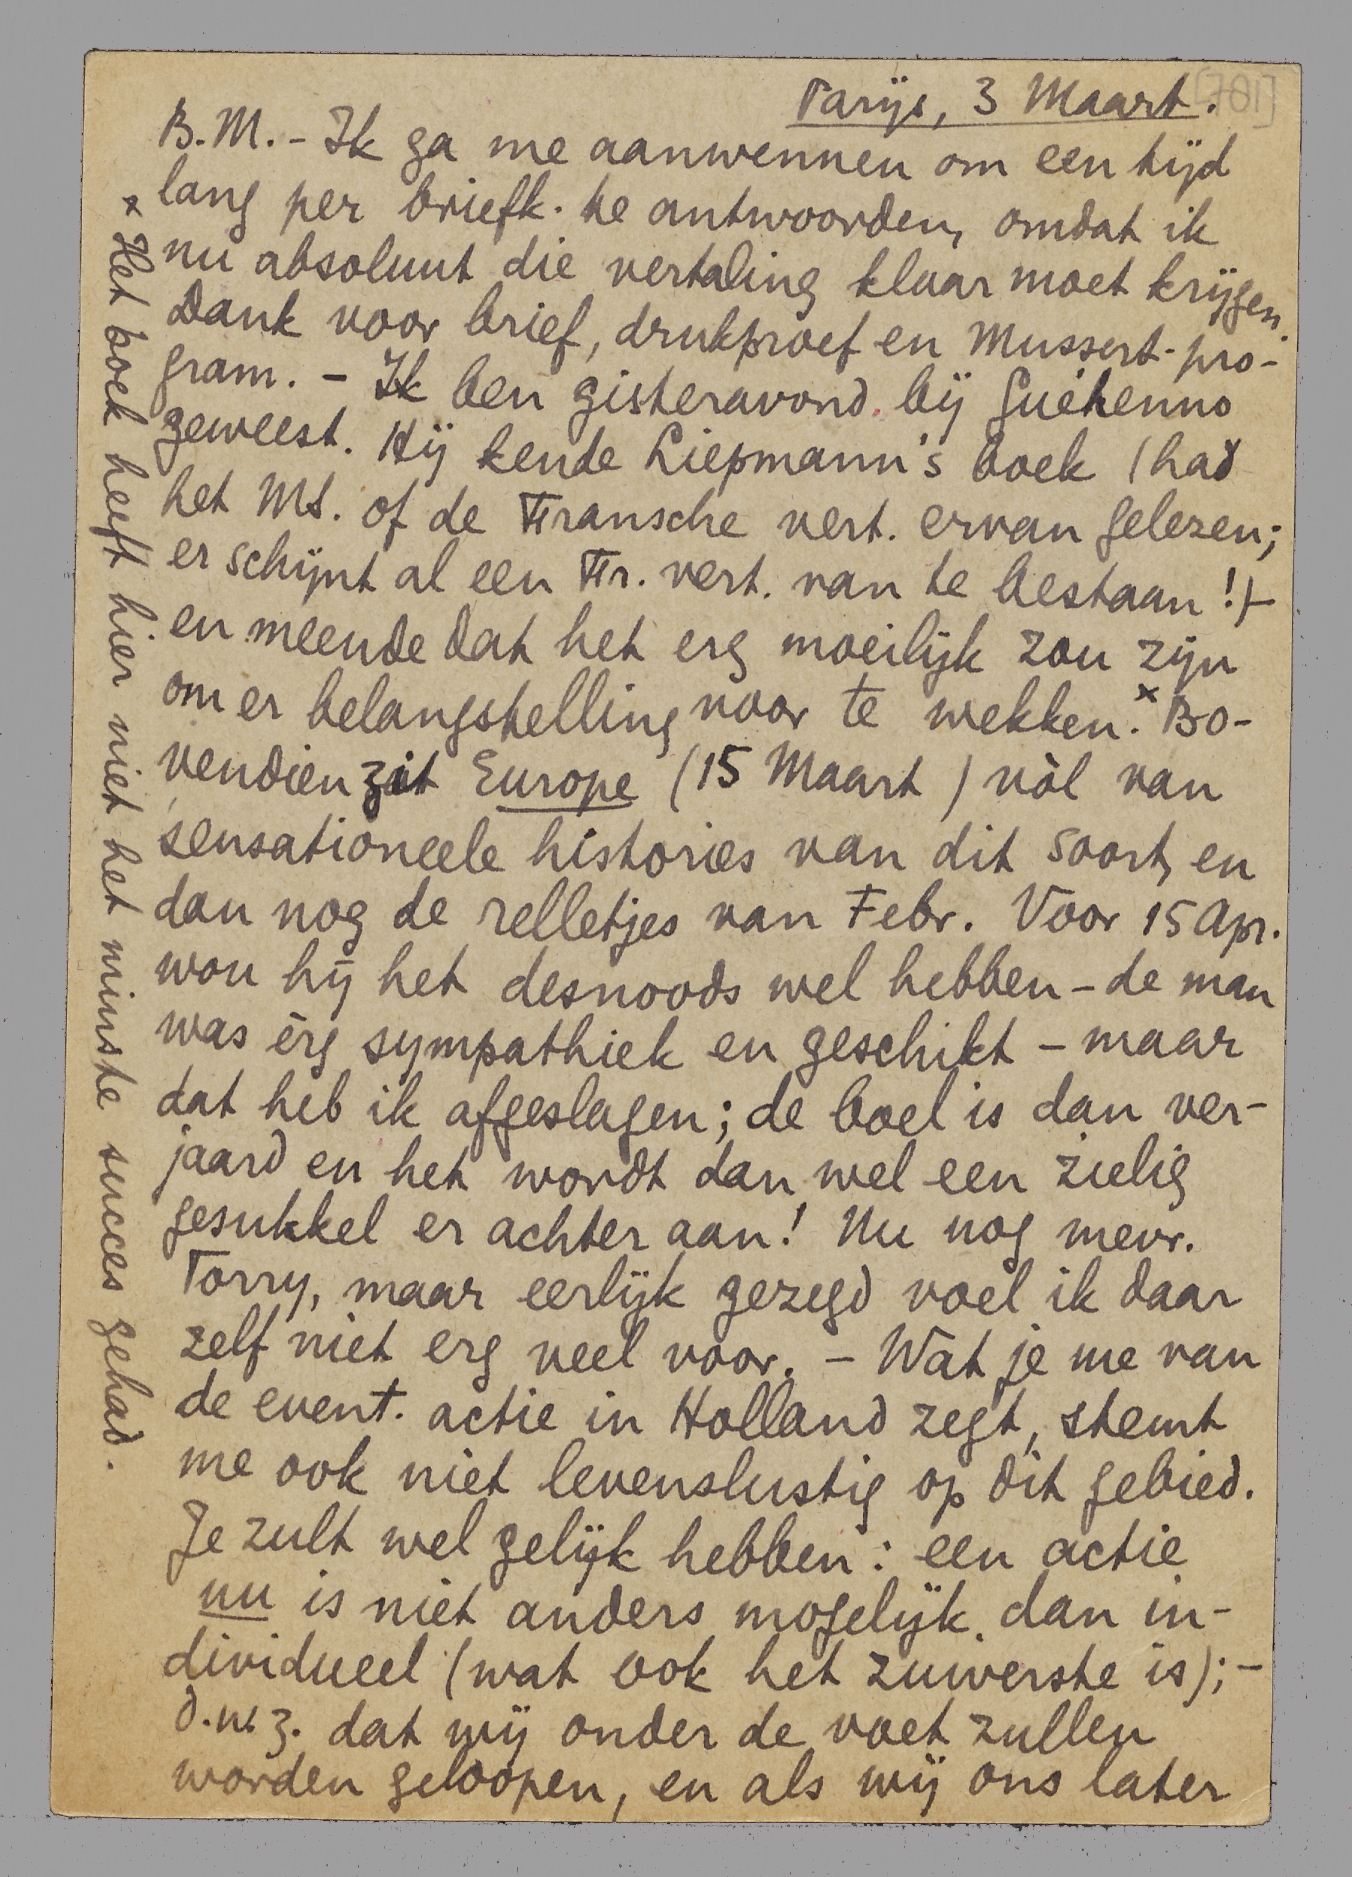 [701]
Parijs, 3 Maart.
B.M. - Ik ga me aanwennen om een tijd
lang per briefk. te antwoorden, omdat ik
nu absoluut die vertaling klaar moet krijgen.
Dank voor brief, drukproef en Mussert-pro-
gram. - Ik ben gisteravond bij Guéhenno
geweest. Hij kende Liepmann's boek (had
het MS. of de Fransche vert. ervan gelezen;
er schijnt al een Fr. vert. van te bestaan!) -
en meende dat het erg moeilijk zou zijn
om er belangstelling voor te wekken.x Bo-
vendien zit Europe (15 Maart) vòl van
sensationeele histories van dit soort, en
dan nog de relletjes van Febr. Voor 15 Apr.
wou hij het desnoods wel hebben - de man
was èrg sympathiek en geschikt - maar
dat heb ik afgeslagen; de boel is dan ver-
jaard en het wordt dan wel een zielig
gesukkel er achter aan! Nu nog mevr.
Torry, maar eerlijk gezegd voel ik daar
zelf niet erg veel voor. - Wat je me van
de event. actie in Holland zegt, stemt
me ook niet levenslustig op dit gebied.
Je zult wel gelijk hebben: een actie
nu is niet anders mogelijk dan in-
dividueel (wat ook het zuiverste is); -
d.w.z. dat wij onder de voet zullen
worden geloopen, en als wij ons later
x Het boek heeft hier niet het minste succes gehad.